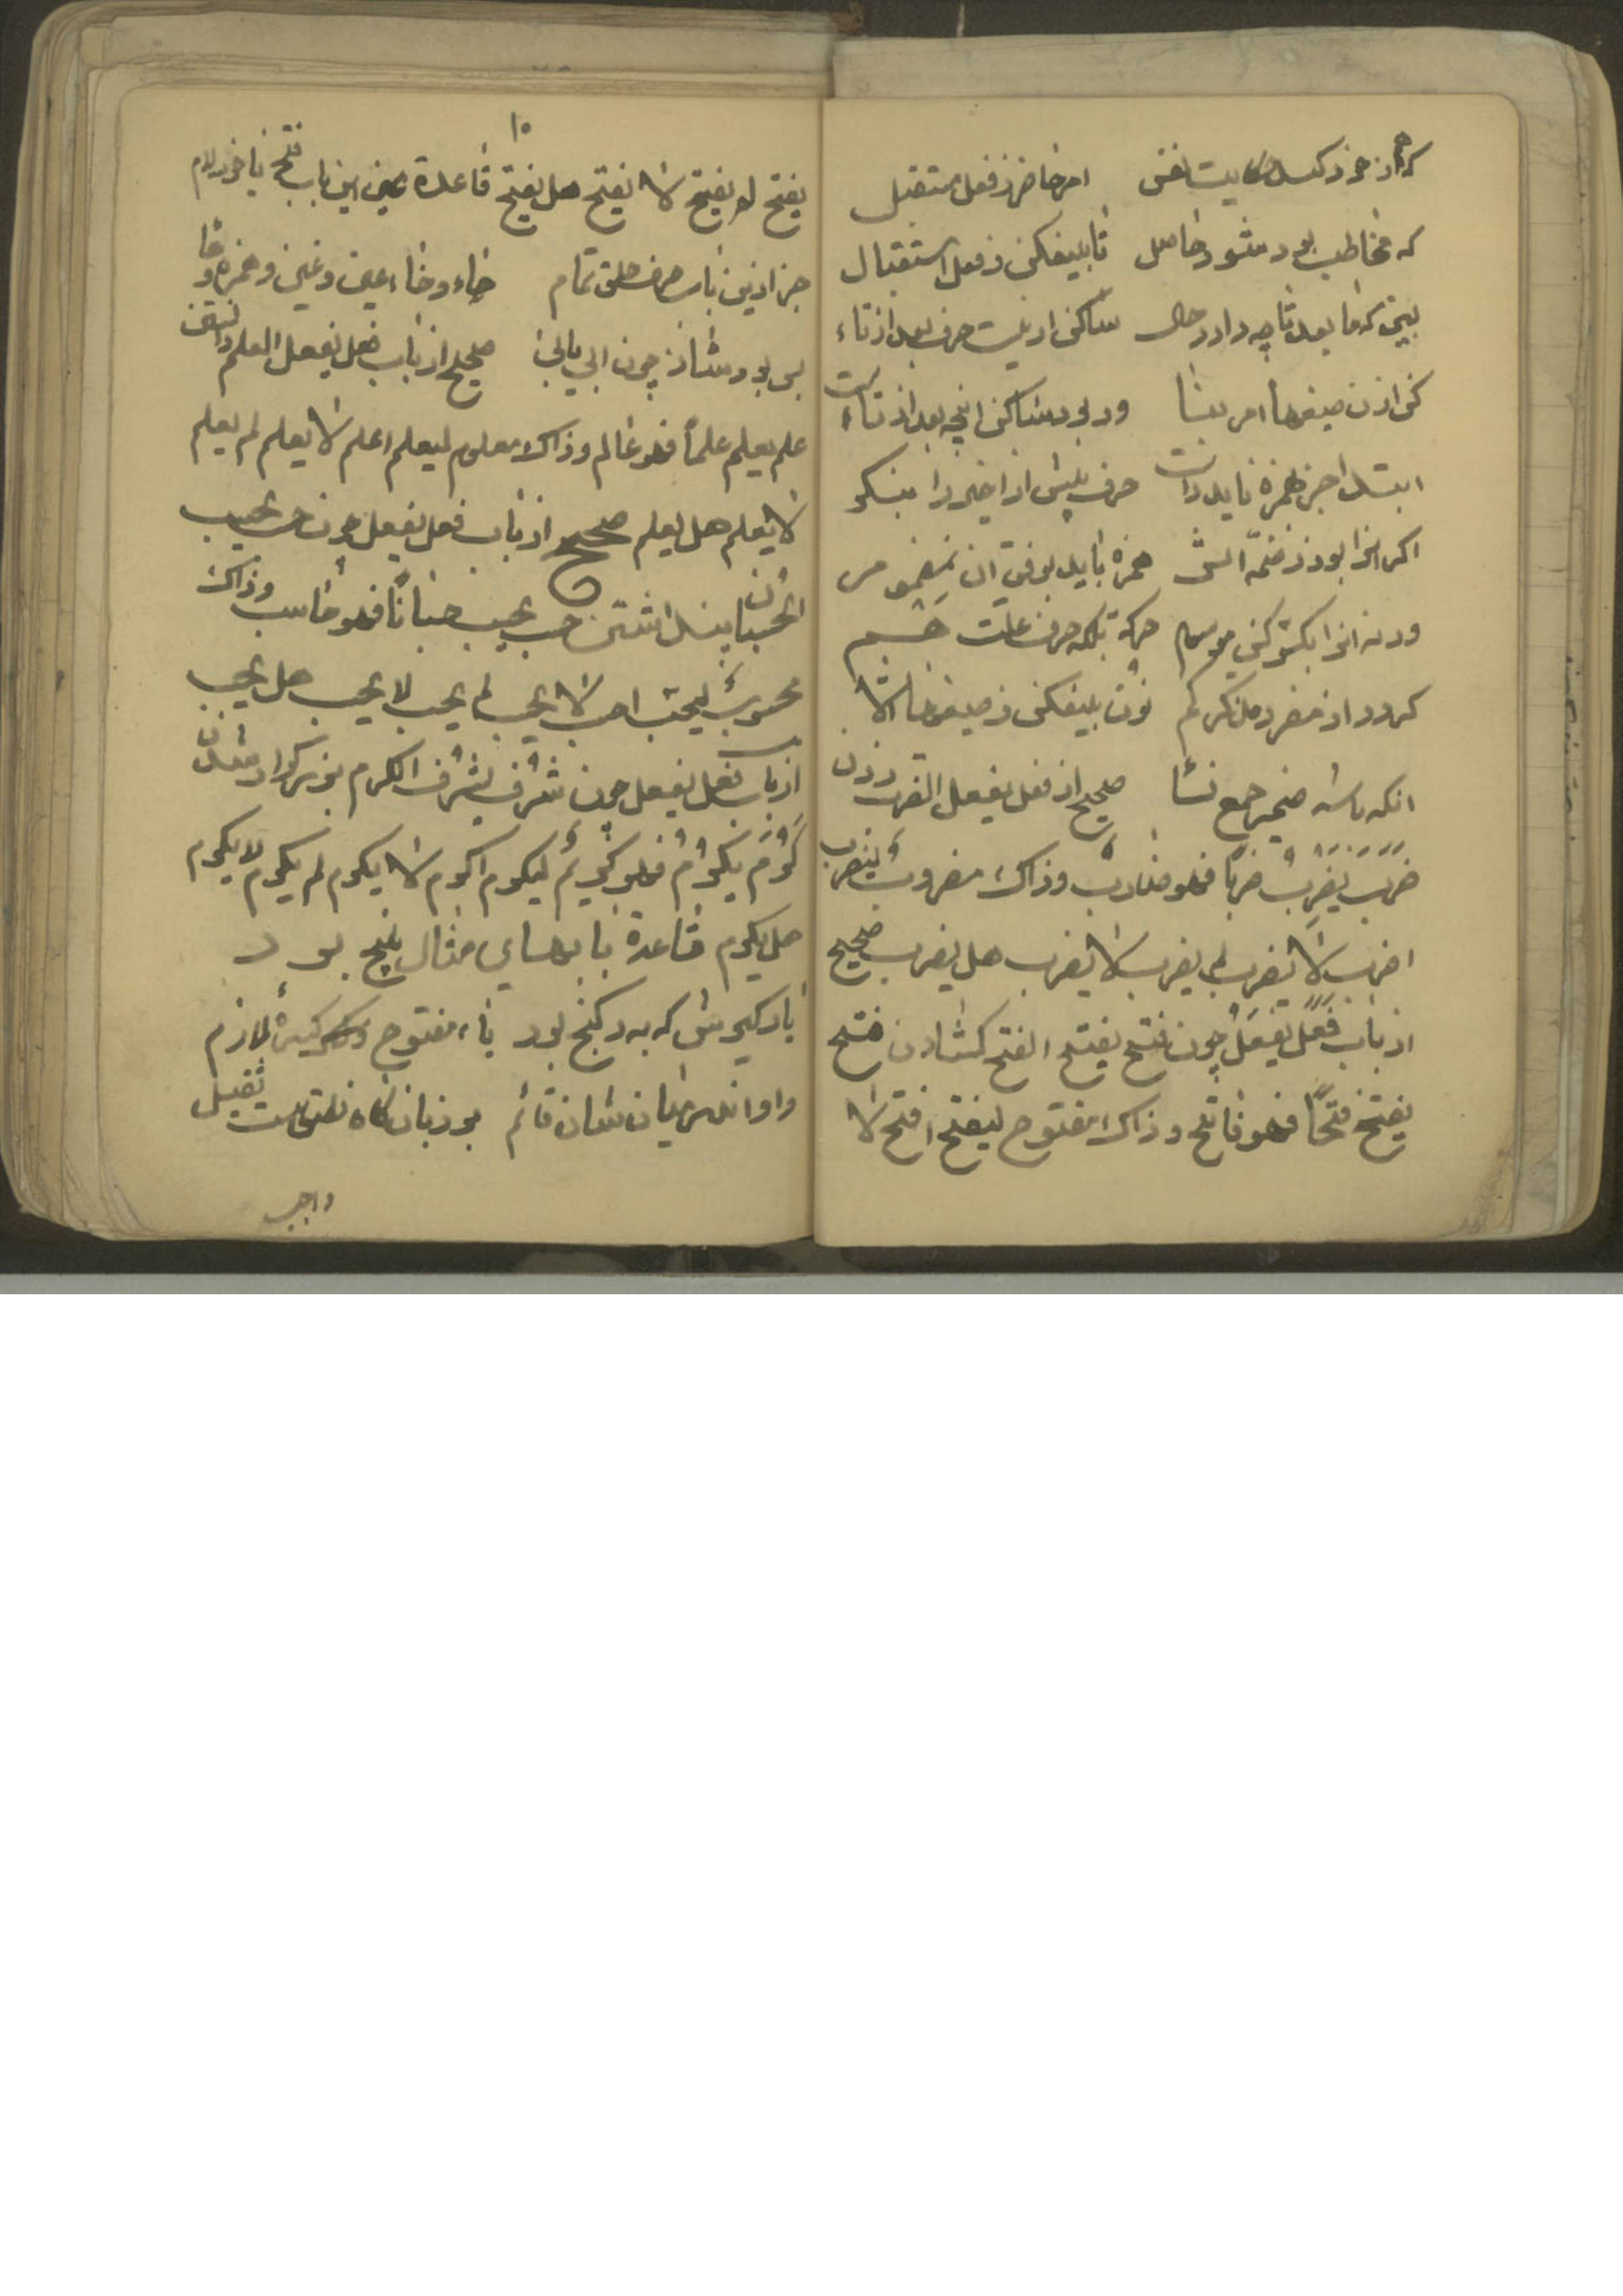 که از خود کند حکایت نفس امر حاضر ز فعل مستقبل
که مخاطب بود شود حاصل تا بیفکن ز فعل استقبال
ببین که ما بعد تا چه دارد حال ساکن ار نیست حرف بعد از تاء
کن از ان صیغها امر بنا ور بود ساکن انچه بعد از تاء است
ابتدا جز همزه ناید راست حرف پیش از اخیر را بنگر
اگر انرا بود ز ضمّه اثر همزه باید بوفق ان مضموم
ورنه انرا بکسر کن موسوم حرکة بلکه حرف علت هم
کردد از مفرد مذکر کم نون بیفکن ز صیغها الا
انکه باشد ضمیر جمع نسا صحیح از فعل یفعل الضرب زدن
ضرب یضرب ضربا فهو ضارب وذاک مضروب لیضرب
اضرب لا تضرب لم یضرب لا یضرب هل یضرب صحیح
از باب فعل یفعل چون فتح یفتح الفتح کشادن فتح
یفتح فتحا فهو فاتح وذاک مفتوح لیفتح افتح لا
۱۰
یفتح لم یفتح لا یفتح هل یفتح قاعدة عین این باب فتح یا خود لام
جز ازین باب حرف حلق تمام حاء و خاء عین و غین و همزه و ها
بس بود شاذ چون ابی یابی صحیح از باب فعل یفعل العلم دانستن
علم یعلم علما فهو عالم وذاک معلوم لیعلم اعلم لا یعلم لم یعلم
لا یعلم هل یعلم صحیح از باب فعل یفعل چون حسب یحسب
الحسبان پنداشتن حسب یحسب حسبانا فهو حاسب وذاک
محسوب لیحسب احسب لا یحسب لم یحسب لا یحسب هل یحسب
از باب فعل یفعل چون شرف یشرف الکرم بزرکوار شدن
کرم یکرم فهو کریم لیکرم اکرم لا یکرم لم یکرم لا یکرم
هل یکرم قاعدة بابهای مثال پنج بود
یاد کیرش که به ز کنج بود یاء مفتوح و کسرهٔ لازم
واو اندر میان شان قائم بر زبان کاه نطق هست ثقیل
واجب